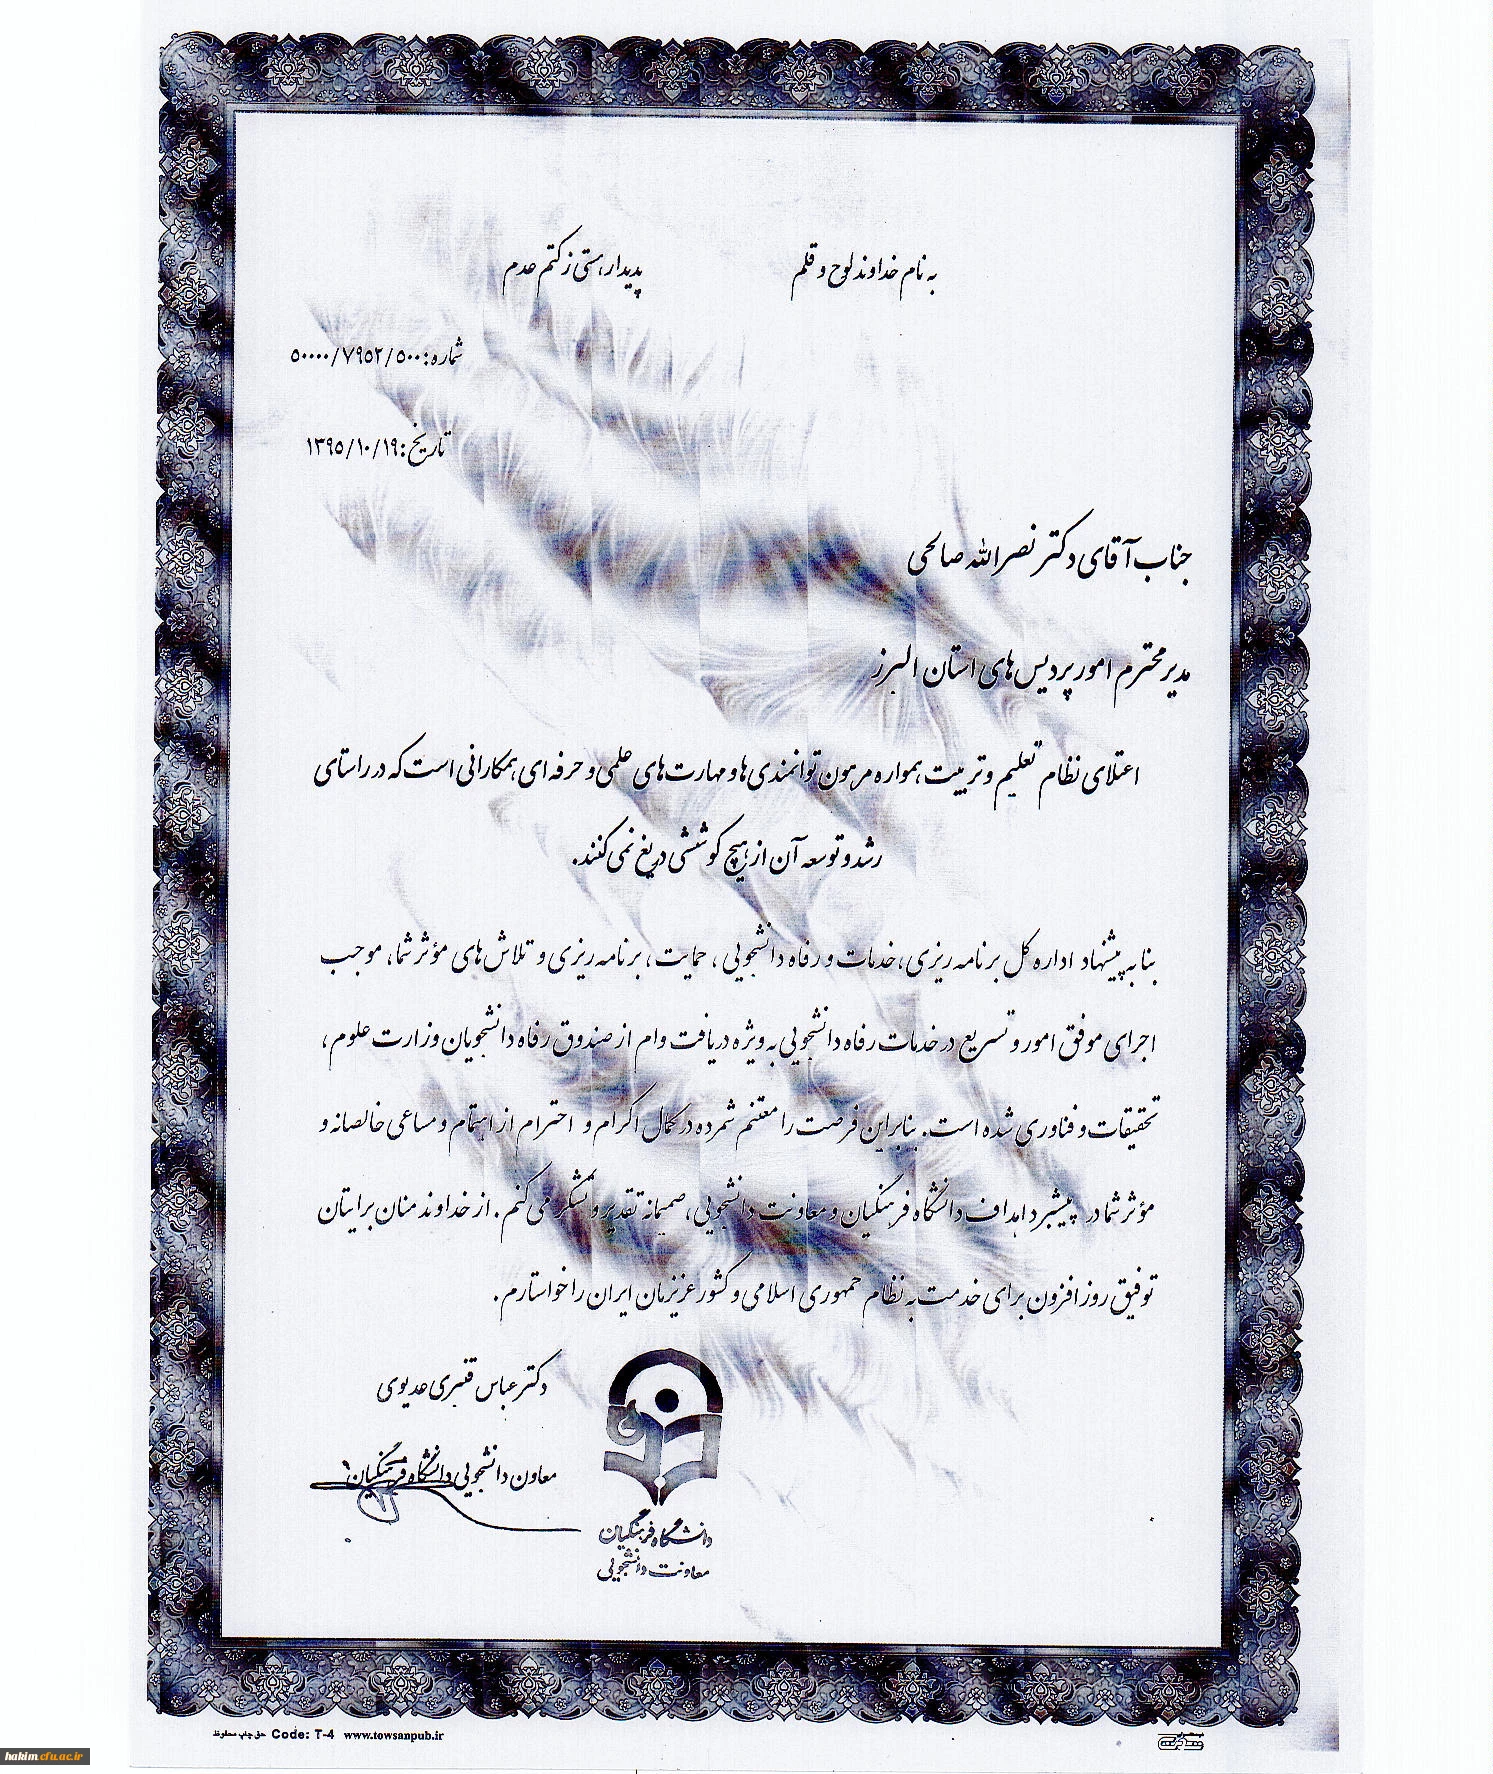 به نام خداوند لوح و قلم پدیدار هستی ز کتم عدم
شماره: ۵۰۰۰۰/۷۹۵۲/۵۰۰
تاریخ: ۱۳۹۵/۱۰/۱۹
جناب آقای دکتر نصرالله صالحی
مدیر محترم امور پردیس های استان البرز
اعتلای نظام تعلیم و تربیت، همواره مرهون توانمندی ها و مهارت های علمی و حرفه ای همکارانی است که در راستای
رشد و توسعه آن از هیچ کوششی دریغ نمی کنند.
بنا به پیشنهاد اداره کل برنامه ریزی، خدمات و رفاه دانشجویی، حمایت، برنامه ریزی و تلاش های مؤثر شما، موجب
اجرای موفق امور و تسریع در خدمات رفاه دانشجویی به ویژه دریافت وام از صندوق رفاه دانشجویان وزارت علوم،
تحقیقات و فناوری شده است. بنابراین فرصت را مغتنم شمرده در کمال اکرام و احترام از اهتمام و مساعی خالصانه و
مؤثر شما در پیشبرد اهداف دانشگاه فرهنگیان و معاونت دانشجویی، صمیمانه تقدیر و تشکر می کنم. از خداوند منان برایتان
توفیق روز افزون برای خدمت به نظام جمهوری اسلامی و کشور عزیزمان ایران را خواستارم.
دکتر عباس قنبری عدیوی
معاون دانشجویی دانشگاه فرهنگیان
دانشگاه فرهنگیان
معاونت دانشجویی
حق چاپ محفوظ Code: T-4 www.towsanpub.ir
hakim.cfu.ac.ir